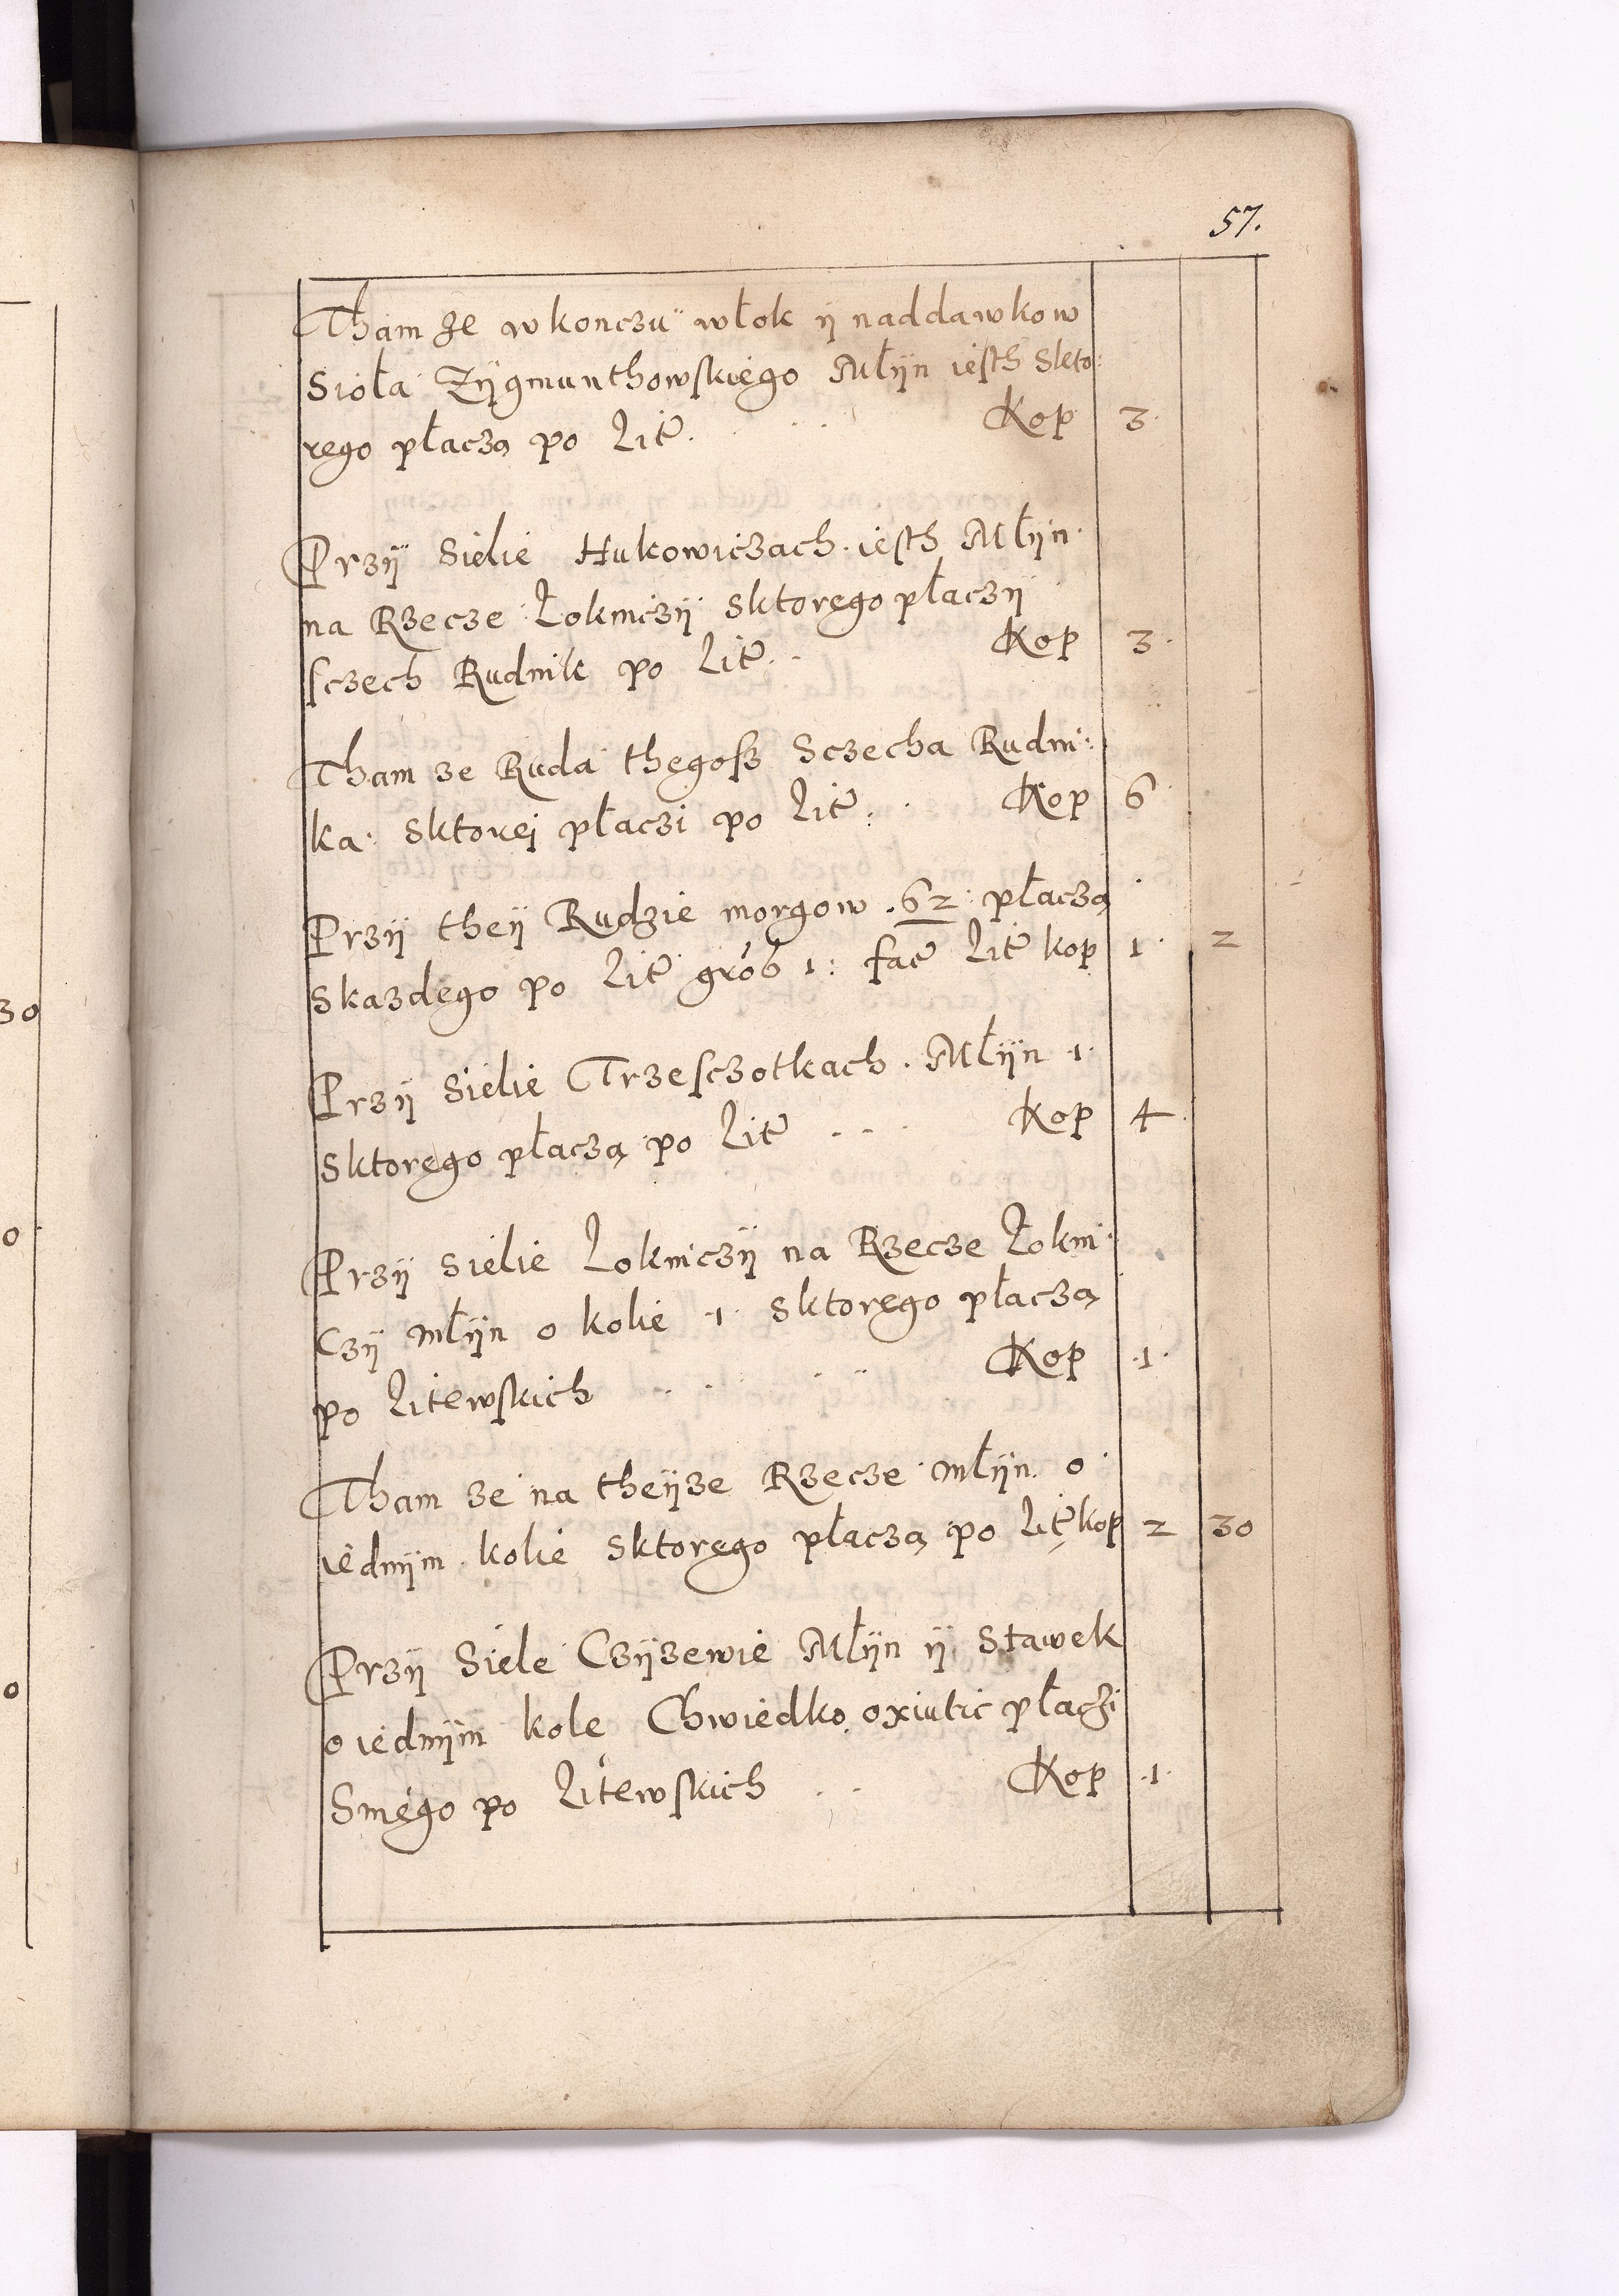 57.
Tham że w konczu włok ÿ naddawkow
Sioła Zÿgmunthowskiego Młÿn iesth skto:
rego płaczą po Lit. Kop 3.
Przÿ Sielie Hukowiczach iesth Młÿn
na Rzecze Łokniczÿ sktorego płaczÿ
sczech Rudnik po Lit. Kop 3.
Tham ze Ruda thegosz Sczecha Rudni:
ka: sktorej płaczi po Lit: Kop 6
Przÿ theÿ Rudzie morgow .62: płaczą
skazdego po Lit grob 1: fac Lit kop 1 2
Przÿ Sielie Trzesczotkach. Młÿn .1.
sktorego płaczą po Lit Kop 4.
Przÿ Sielie Lokniczÿ na Rzecze Łokni
Czÿ młÿn o kolie .1. sktorego płaczą
po Litewskich Kop .1.
Tham ze na theÿze Rzecze młÿn o
iednÿm kolie sktorego płaczą po Lit kop 2 30
Przÿ Siele Czÿzewie Młÿn ÿ Stawek
o iednÿm kole Chwiedko oxiutic płaczi
Sniego po Litewskich Kop .1.
30
0
0